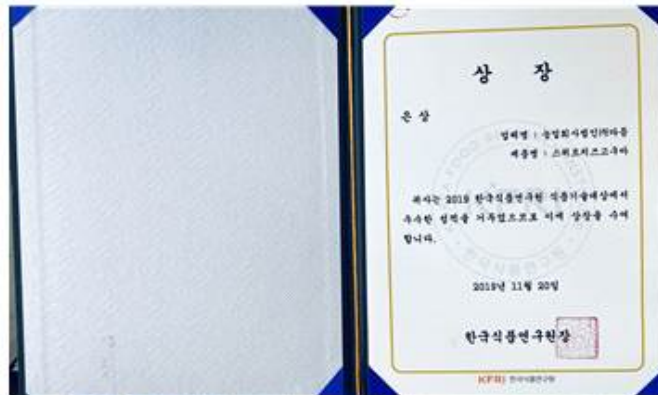 상 장
은 상
업체명 : 농업회사법인
제품명 : 스위트치즈고구마
귀사는 2019 한국식품연구원 식품기술대상에서
우수한 성적을 거두었으므로 이에 상장을 수여
합니다.
2019년 11월 20일
한국식품연구원장
KFRI 한국식품연구원